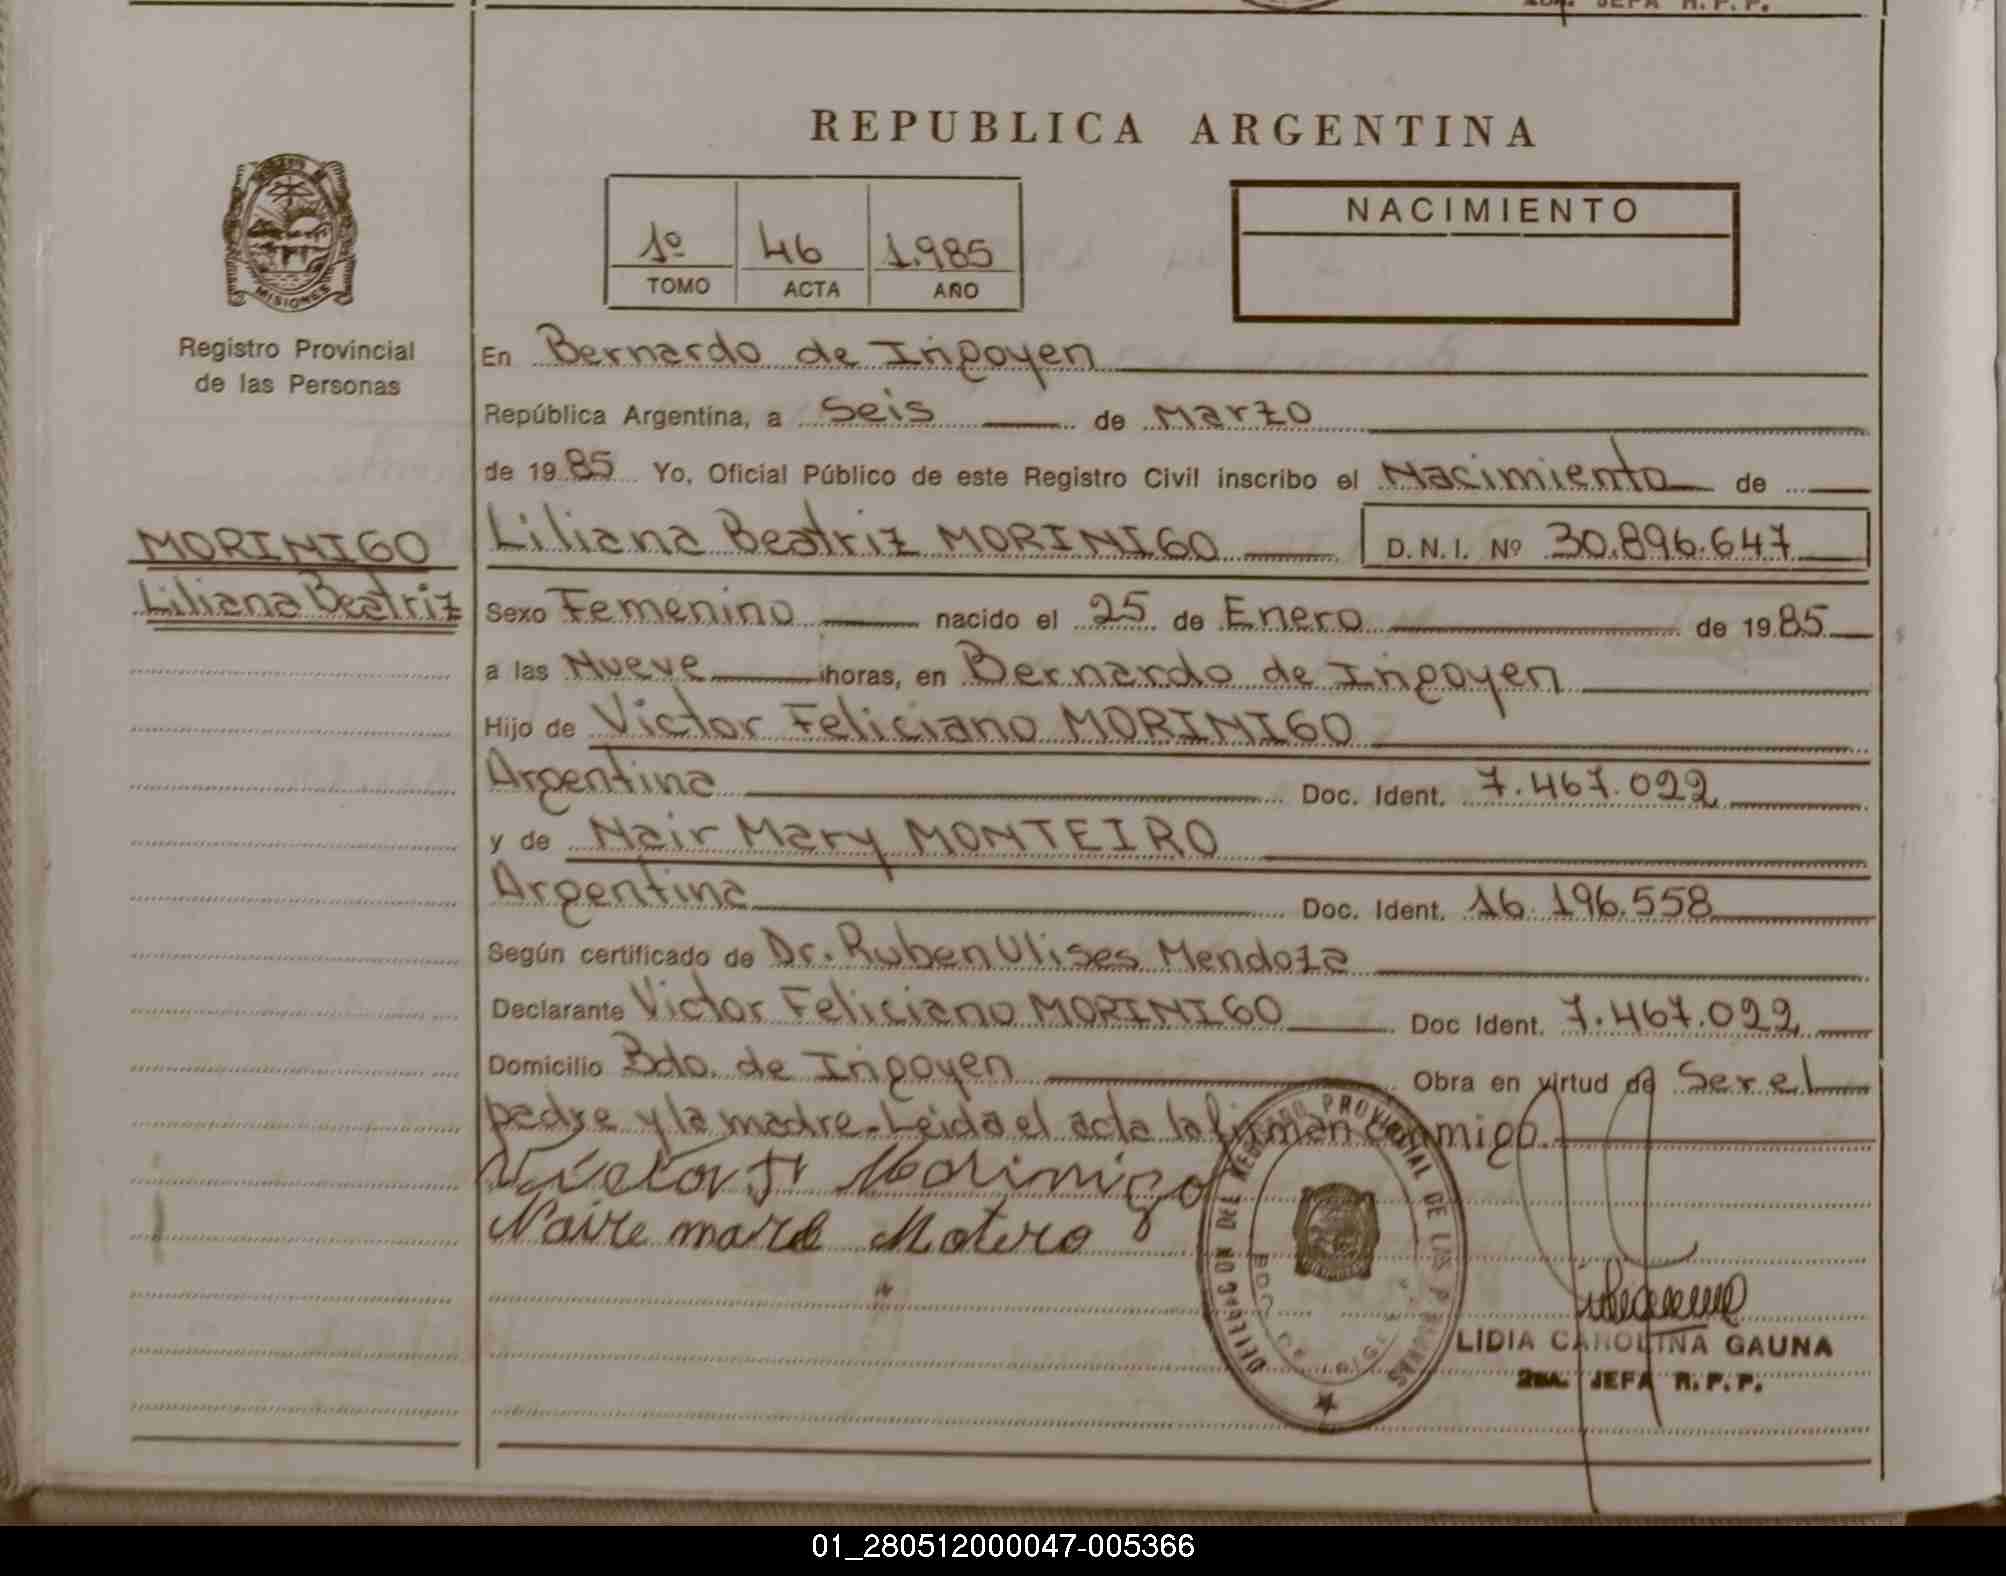 2DA. JEFA R.P.P.
REPUBLICA ARGENTINA
1º 46 1.985
TOMO ACTA AÑO
NACIMIENTO
MISIONES
Registro Provincial
de las Personas
En Bernardo de Irigoyen
República Argentina, a Seis de Marzo
de 1985 Yo, Oficial Público de este Registro Civil inscribo el Nacimiento de
MORINIGO
Liliana Beatriz
Liliana Beatriz MORINIGO D.N.I. Nº 30.896.647
Sexo Femenino nacido el 25 de Enero de 1985
a las Nueve horas, en Bernardo de Irigoyen
Hijo de Victor Feliciano MORINIGO
Argentina Doc. Ident. 7.467.022
y de Nair Mary MONTEIRO
Argentina Doc. Ident. 16.196.558
Según certificado de Dr. Ruben Ulises Mendoza
Declarante Victor Feliciano MORINIGO Doc Ident. 7.467.022
Domicilio Bdo. de Irigoyen Obra en virtud de Ser el
padre y la madre.-Leida el acta la firman conmigo.
Victor F Morinigo
Naire mare Motero
DELEGACION DEL REGISTRO PROVINCIAL DE LAS PERSONAS
BDO DE IRIGOYEN
LIDIA CAROLINA GAUNA
2DA. JEFA R.P.P.
01_280512000047-005366